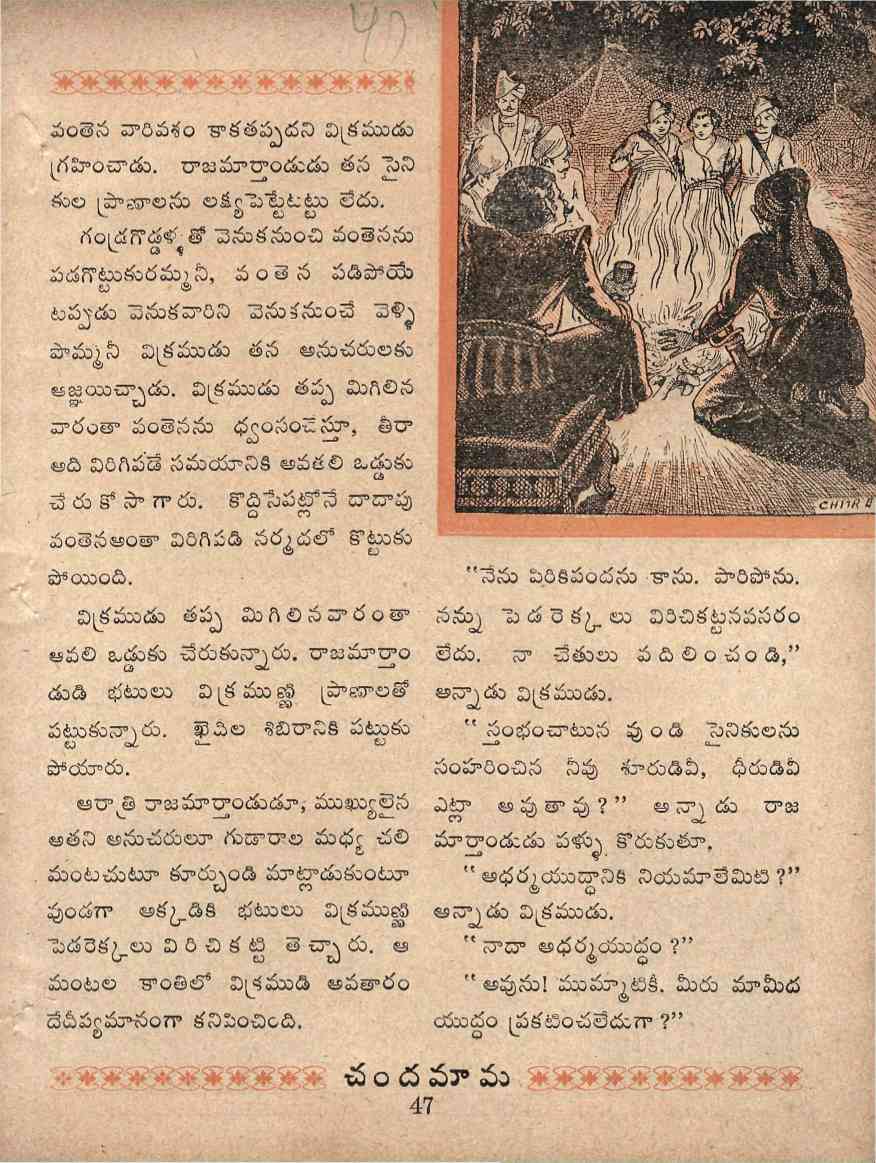 వంతెన వారివశం కాకతప్పదని విక్రముడు
గ్రహించాడు. రాజమార్తాండుడు తన సైని
కుల ప్రాణాలను లక్ష్యపెట్టేటట్టు లేదు.
గండ్రగొడ్డళ్ళతో వెనుకనుంచి వంతెనను
పడగొట్టుకురమ్మనీ, వంతెన పడిపోయే
టప్పుడు వెనుకవారిని వెనుకనుంచే వెళ్ళి
పొమ్మనీ విక్రముడు తన అనుచరులకు
ఆజ్ఞయిచ్చాడు. విక్రముడు తప్ప మిగిలిన
వారంతా వంతెనను ధ్వంసంచేస్తూ, తీరా
అది విరిగిపడే సమయానికి అవతలి ఒడ్డుకు
చేరుకోసాగారు. కొద్దిసేపట్లోనే దాదాపు
వంతెనఅంతా విరిగిపడి నర్మదలో కొట్టుకు
పోయింది.
విక్రముడు తప్ప మిగిలినవారంతా
ఆవలి ఒడ్డుకు చేరుకున్నారు. రాజమార్తాం
డుడి భటులు విక్రముణ్ణి ప్రాణాలతో
పట్టుకున్నారు. ఖైదీల శిబిరానికి పట్టుకు
పోయారు.
ఆరాత్రి రాజమార్తాండుడూ, ముఖ్యులైన
అతని అనుచరులూ గుడారాల మధ్య చలి
మంటచుటూ కూర్చుండి మాట్లాడుకుంటూ
వుండగా అక్కడికి భటులు విక్రముణ్ణి
పెడరెక్కలు విరిచికట్టి తెచ్చారు. ఆ
మంటల కాంతిలో విక్రముడి అవతారం
దేదీప్యమానంగా కనిపించింది.
CHITRA
“నేను పిరికిపందను కాను. పారిపోను.
నన్ను పెడరెక్కలు విరిచికట్టనవసరం
లేదు. నా చేతులు వదిలించండి,”
అన్నాడు విక్రముడు.
“స్తంభంచాటున వుండి సైనికులను
సంహరించిన నీవు శూరుడివీ, ధీరుడివీ
ఎట్లా అవుతావు?” అన్నాడు రాజ
మార్తాండుడు పళ్ళు కొరుకుతూ.
“అధర్మయుద్ధానికి నియమాలేమిటి?”
అన్నాడు విక్రముడు.
“నాదా అధర్మయుద్ధం?”
“అవును! ముమ్మాటికీ. మీరు మామీద
యుద్ధం ప్రకటించలేదుగా?”
చందమామ
47